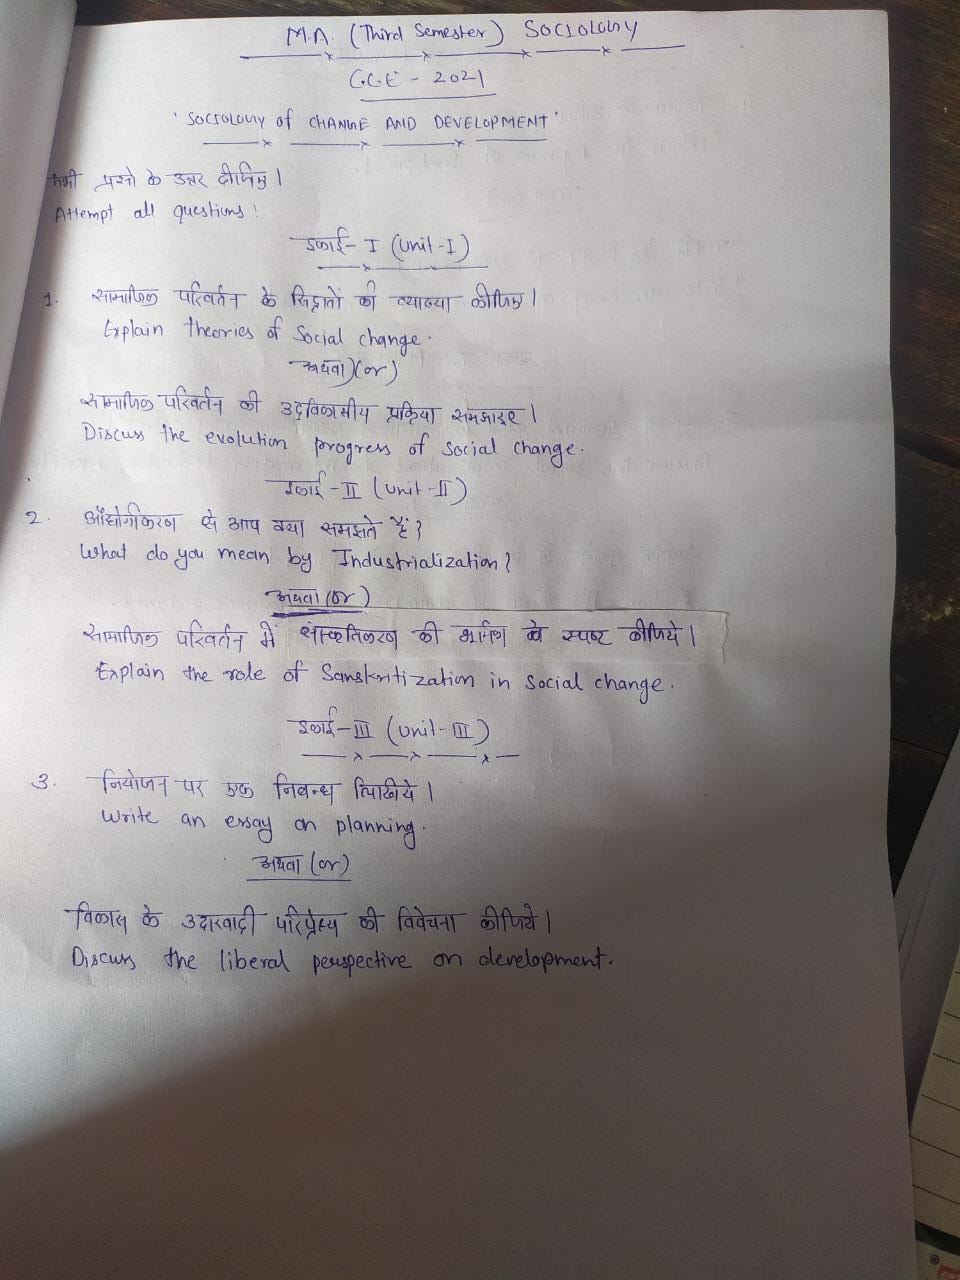 M.A. (Third Semester) SOCIOLOGY
C.C.E - 2021
'SOCIOLOGY of CHANGE AND DEVELOPMENT'
सभी प्रश्नो के उत्तर दीजिए।
Attempt all questions!
इकाई - I (Unit-I)
1. सामाजिक परिवर्तन के सिद्धांतों की व्याख्या कीजिए।
Explain theories of Social change.
अथवा (or)
सामाजिक परिवर्तन की उद्दविकासीय प्रक्रिया समझाइए।
Discuss the evolution progress of social change.
इकाई - II (Unit-II)
2. औद्योगीकरण से आप क्या समझते हैं?
What do you mean by Industrialization?
अथवा (or)
सामाजिक परिवर्तन में संस्कृतिकरण की भूमिका को स्पष्ट कीजिये।
Explain the role of Sanskritization in social change.
इकाई - III (Unit-III)
3. नियोजन पर एक निबन्ध लिखिये।
Write an essay on planning.
अथवा (or)
विकास के उदारवादी परिप्रेक्ष्य की विवेचना कीजिये।
Discuss the liberal perspective on development.